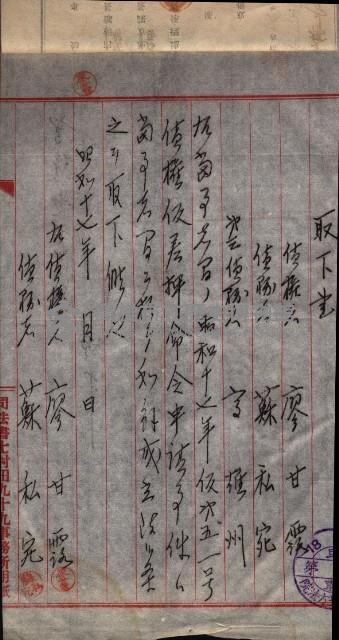 取下書
債權者 廖甘露
債務者 蘇私宛
第三債務者 高雄州
右當事者間ノ昭和十七年仮第五一号
債權仮差押命令申請事件ハ
當事者間ニ於テ和解成立候条
之ヲ取下候也
昭和十七年 月 日
右債權者 廖甘露
債務者 蘇私宛
司法書士村田九十九事務所用紙